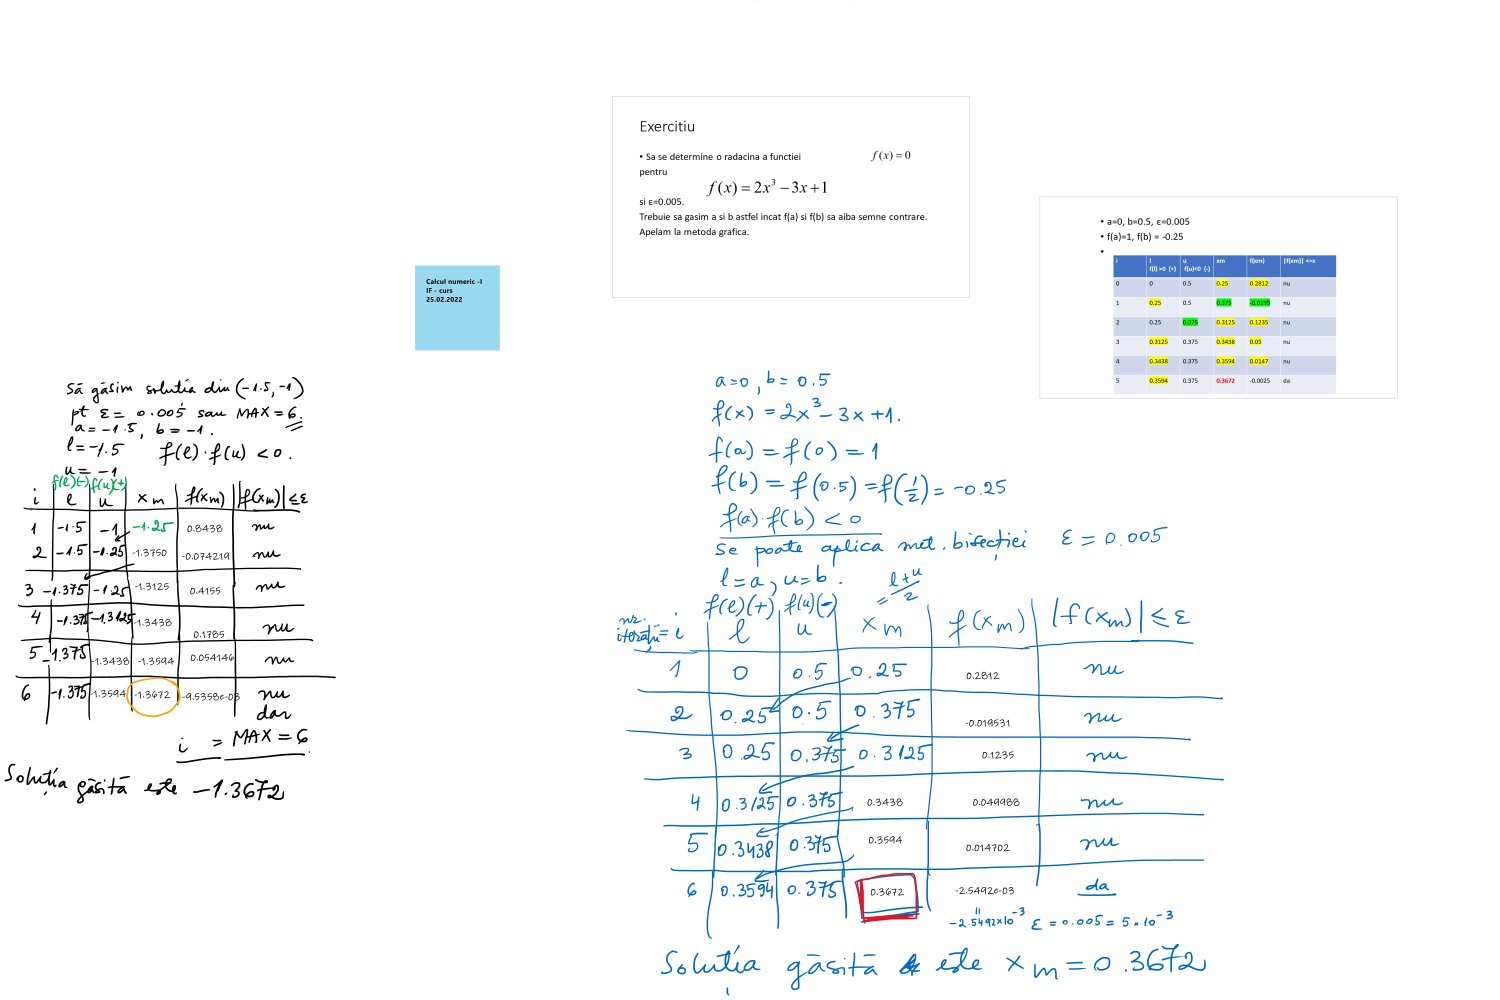 Exercitiu
• Sa se determine o radacina a functiei f(x) = 0
pentru
f(x) = 2x³ − 3x + 1
si ε=0.005.
Trebuie sa gasim a si b astfel incat f(a) si f(b) sa aiba semne contrare.
Apelam la metoda grafica.
• a=0, b=0.5, ε=0.005
• f(a)=1, f(b) = -0.25
•
i l u xm f(xm) |f(xm)| <=ε
f(l) >0 (+) f(u)<0 (-)
0 0 0.5 0.25 0.2812 nu
1 0.25 0.5 0.375 -0.0195 nu
2 0.25 0.375 0.3125 0.1235 nu
3 0.3125 0.375 0.3438 0.05 nu
4 0.3438 0.375 0.3594 0.0147 nu
5 0.3594 0.375 0.3672 -0.0025 da
Calcul numeric -I
IF - curs
25.02.2022
Să găsim soluția din (-1.5, -1)
pt ε = 0.005 sau MAX = 6.
a = -1.5, b = -1.
l = -1.5 f(l)·f(u) < 0.
u = -1
f(l)(-) f(u)(+)
i l u xm f(xm) |f(xm)| ≤ ε
1 -1.5 -1 -1.25 0.8438 nu
2 -1.5 -1.25 -1.3750 -0.074219 nu
3 -1.375 -1.25 -1.3125 0.4155 nu
4 -1.375 -1.3125 -1.3438 0.1785 nu
5 -1.375 -1.3438 -1.3594 0.054146 nu
6 -1.375 -1.3594 -1.3672 -9.5358e-03 nu
dar
i = MAX = 6
Soluția găsită este -1.3672
a=0, b = 0.5
f(x) = 2x³ - 3x + 1.
f(a) = f(0) = 1
f(b) = f(0.5) = f(1/2) = -0.25
f(a)·f(b) < 0
se poate aplica met. bisecției ε = 0.005
l = a, u = b. = l+u/2
f(l)(+) f(u)(-)
nr. iterație = i l u xm f(xm) |f(xm)| ≤ ε
1 0 0.5 0.25 0.2812 nu
2 0.25 0.5 0.375 -0.019531 nu
3 0.25 0.375 0.3125 0.1235 nu
4 0.3125 0.375 0.3438 0.049988 nu
5 0.3438 0.375 0.3594 0.014702 nu
6 0.3594 0.375 0.3672 -2.5492e-03 da
=
-2.5492×10⁻³ ε = 0.005 = 5×10⁻³
Soluția găsită este xm = 0.3672